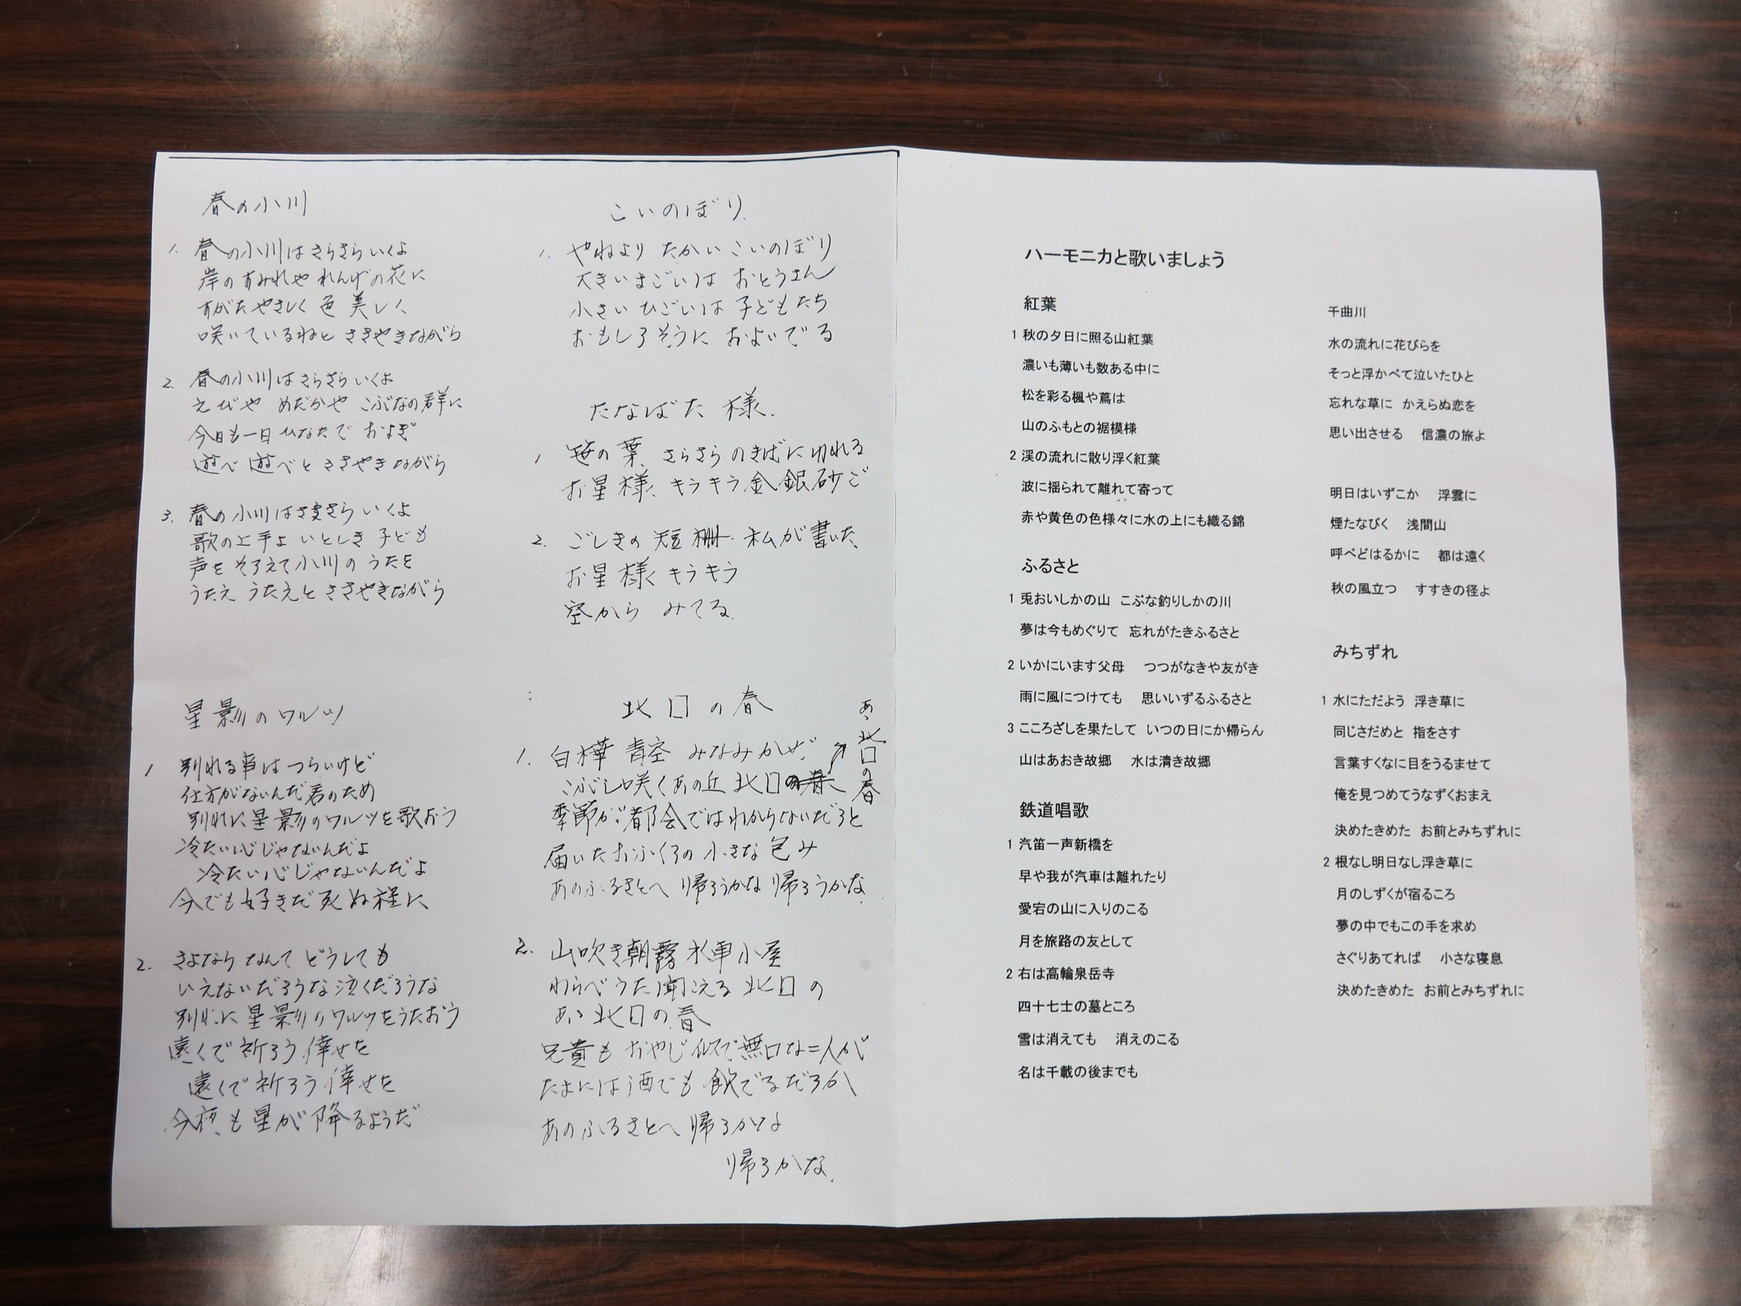 春の小川
1. 春の小川はさらさらいくよ
岸のすみれや れんげの花に
すがたやさしく 色美しく
咲いているねと ささやきながら
2. 春の小川はさらさらいくよ
えびや めだかや こぶなの群に
今日も一日 ひなたで およぎ
遊べ 遊べと ささやきながら
3. 春の小川はさらさら いくよ
歌の上手よ いとしき 子ども
声を そろえて 小川の うたを
うたえ うたえと ささやきながら
こいのぼり
1. やねより たかい こいのぼり
大きいまごいは おとうさん
小さい ひごいは 子どもたち
おもしろそうに およいでる
たなばた 様
1 笹の葉 さらさら のきばに 切れる
お星様 キラキラ 金銀砂ご
2. ごしきの 短冊 私が書いた
お星様 キラキラ
空から みてる
星影のワルツ
1 別れる事は つらいけど
仕方がないんだ君のため
別れに星影のワルツを歌おう
冷たい心じゃないんだよ
冷たい心じゃないんだよ
今でも好きだ 死ぬ程に
2. さよなら なんて どうしても
いえないだろうな 泣くだろうな
別れに 星影のワルツをうたおう
遠くで祈ろう 倖せを
遠くで祈ろう 倖せを
今夜も 星が降るようだ
北国の春
1. 白樺 青空 みなみかぜ
こぶし咲く あの丘 北国の春
あゝ北国の春
季節が都会ではわからないだろと
届いたおふくろの 小さな包み
あのふるさとへ 帰ろうかな 帰ろうかな
2. 山吹き 朝霧 水車小屋
わらべうた 聞こえる 北国の
あゝ北国の春
兄貴も おやじ似で 無口な二人が
たまには 酒でも 飲でるだろか
あのふるさとへ 帰ろかな
帰ろかな
ハーモニカと歌いましょう
紅葉
1 秋の夕日に照る山紅葉
濃いも薄いも数ある中に
松を彩る楓や蔦は
山のふもとの裾模様
2 渓の流れに散り浮く紅葉
波に揺られて離れて寄って
赤や黄色の色様々に水の上にも織る錦
ふるさと
1 兎おいしかの山 こぶな釣りしかの川
夢は今もめぐりて 忘れがたきふるさと
2 いかにいます父母 つつがなきや友がき
雨に風につけても 思いいずるふるさと
3 こころざしを果たして いつの日にか帰らん
山はあおき故郷 水は清き故郷
鉄道唱歌
1 汽笛一声新橋を
早や我が汽車は離れたり
愛宕の山に入りのこる
月を旅路の友として
2 右は高輪泉岳寺
四十七士の墓ところ
雪は消えても 消えのこる
名は千載の後までも
千曲川
水の流れに花びらを
そっと浮かべて泣いたひと
忘れな草に かえらぬ恋を
思い出させる 信濃の旅よ
明日はいずこか 浮雲に
煙たなびく 浅間山
呼べどはるかに 都は遠く
秋の風立つ すすきの径よ
みちずれ
1 水にただよう 浮き草に
同じさだめと 指をさす
言葉すくなに目をうるませて
俺を見つめてうなずくおまえ
決めたきめた お前とみちずれに
2 根なし明日なし浮き草に
月のしずくが宿るころ
夢の中でもこの手を求め
さぐりあてれば 小さな寝息
決めたきめた お前とみちずれに